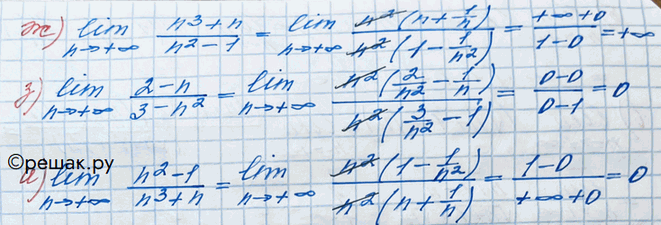 ж) lim n→+∞ (n³+n)/(n²-1) = lim n→+∞ n²(n+1/n)/n²(1-1/n²) = (+∞+0)/(1-0) = +∞
з) lim n→+∞ (2-n)/(3-n²) = lim n→+∞ n²(2/n²-1/n)/n²(3/n²-1) = (0-0)/(0-1) = 0
©решак.ру
и) lim n→+∞ (n²-1)/(n³+n) = lim n→+∞ n²(1-1/n²)/n²(n+1/n) = (1-0)/(+∞+0) = 0